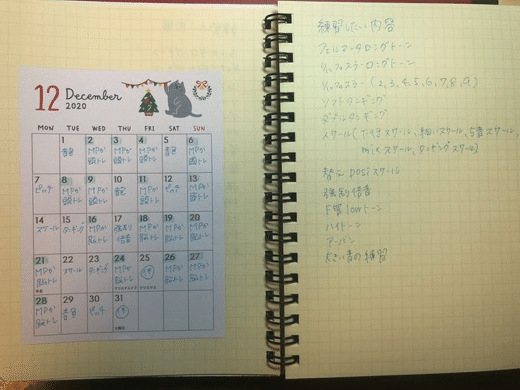 12 December
2020
MON TUE WED THU FRI SAT SUN
1 2 3 4 5 6
音色 MPか 頭トレ MPか 頭トレ MPか 頭トレ 音色 MPか 頭トレ
7 8 9 10 11 12 13
ピッチ MPか 頭トレ MPか 頭トレ 音色 MPか 頭トレ ピッチ MPか 頭トレ
14 15 16 17 18 19 20
スケール タンギング MPか 脳トレ 倍音 MPか 脳トレ MPか 脳トレ MPか 脳トレ
21 22 23 24 25 26 27
MPか 脳トレ スケール タンギング MPか 脳トレ MPか 脳トレ MPか 脳トレ
クリスマスイブ クリスマス
28 29 30 31
MPか 脳トレ 音色 ピッチ
大晦日
練習したい内容
フェルマータロングトーン
リップスラーロングトーン
リップスラー (2,3,4,5,6,7,8,9)
ソフトタンギング
ダブルタンギング
スケール
mixスケール, タンギングスケール
替え posi スケール
倍音
下響lowトーン
ハイトーン
アーバン
大きい音の練習